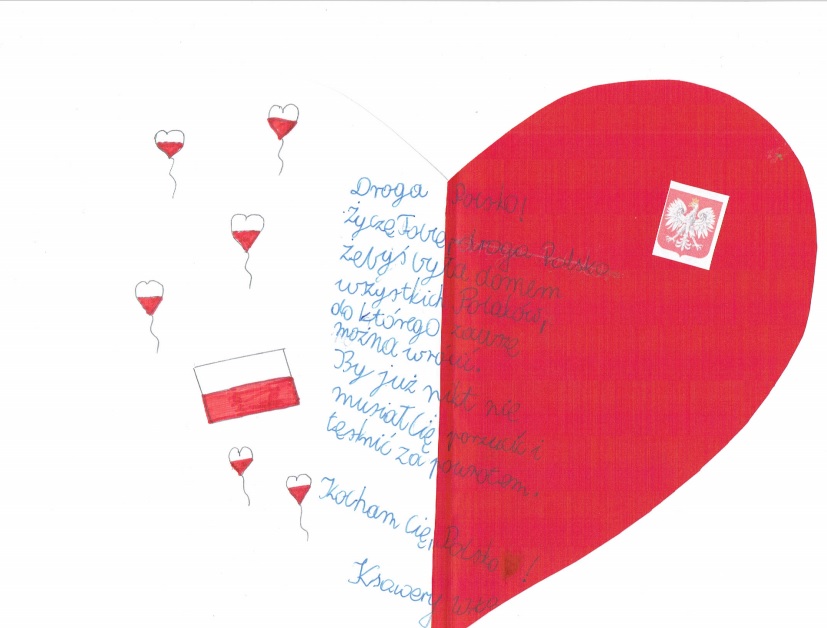 Droga Polsko!
Życzę Tobie, droga Polsko
żebyś była domem
wszystkich Polaków,
do którego zawsze
można wrócić.
By już nikt nie
musiał Cię porzucać i
tęsknić za powrotem.
Kocham Cię, Polsko!
Ksawery